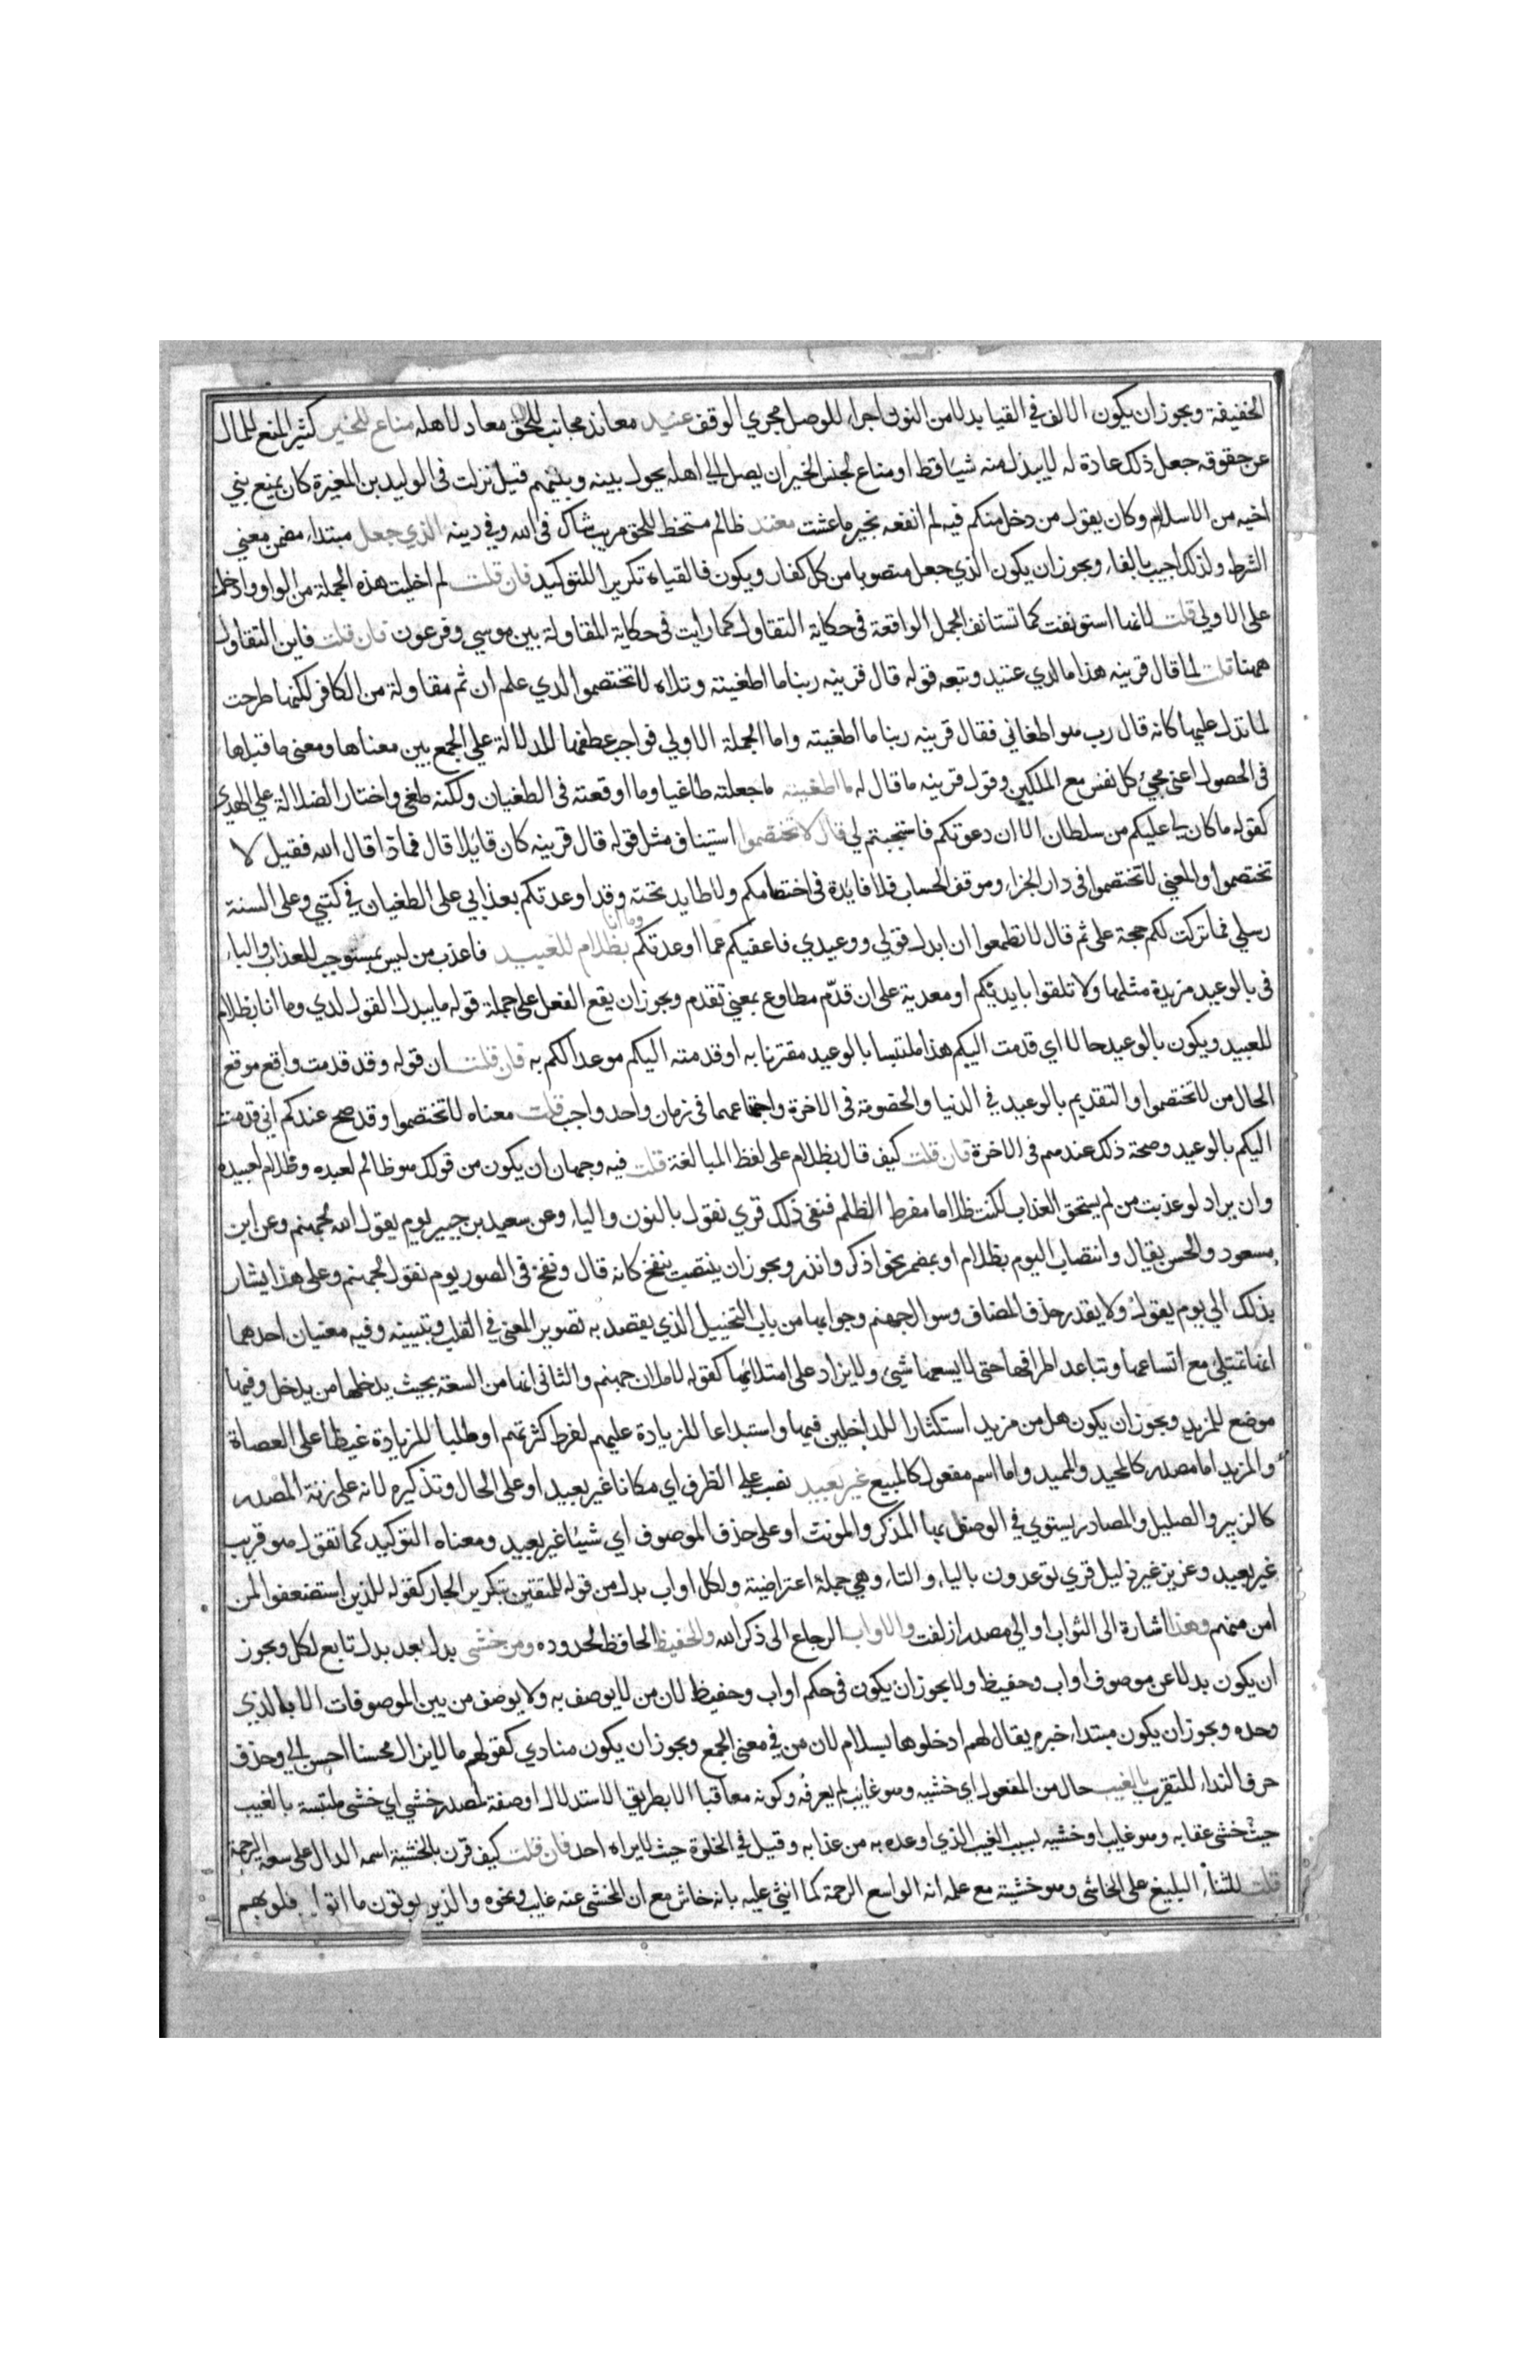 الخفيفة ويجوز ان يكون الالف في القيا بدلا من النون اجراء للوصل مجري الوقف عنيد معاند مجانب للحق معاد لاهله مناع للخير كثير المنع للمال
عن حقوقه جعل ذلك عادة له لا يبذل منه شيأ قط او مناع لجنس الخير ان يصل الي اهله يحول بينه وبينهم قيل نزلت في الوليد بن المغيرة كان يمنع بني
اخيه من الاسلام وكان يقول من دخل منكم فيه لم انفعه بخير ما عشت معتد ظالم متخط للحق مريب شاك في الله وفي دينه الذي جعل مبتداء مضمن معني
الشرط ولذلك اجيب بالفاء ويجوز ان يكون الذي جعل منصوبا من كل كفار ويكون فالقياه تكريرا للتوكيد فان قلت لم اخليت هذه الجملة من الواو وادخلت
علي الاولي قلت لانها استونفت كما تستانف الجمل الواقعة في حكاية التقاول كما رايت في حكاية المقاولة بين موسي وفرعون فان قلت فاين التقاول
ههنا قلت لما قال قرينه هذا ما لدي عتيد وتبعه قوله قال قرينه ربنا ما اطغيته وتلاه لا تختصموا لدي علم ان ثم مقاولة من الكافر لكنها طرحت
لما تدل عليها كانه قال رب هو اطغاني فقال قرينه ربنا ما اطغيته واما الجملة الاولي فواجب عطفها للدلالة علي الجمع بين معناها ومعني ما قبلها
في الحصول اعني مجيء كل نفس مع الملكين وقول قرينه ما قال له ما اطغيته ما جعلته طاغيا وما اوقعته في الطغيان ولكنه طغي واختار الضلالة علي الهدي
كقوله ما كان لي عليكم من سلطان الا ان دعوتكم فاستجبتم لي قال لا تختصموا استيناف مثل قوله قال قرينه كان قائلا قال فماذا قال الله فقيل لا
تختصموا والمعني لا تختصموا في دار الجزاء وموقف الحساب فلا فايدة في اختصامكم ولا طايد تحته وقد اوعدتكم بعذابي علي الطغيان في كتبي وعلي السنة
رسلي فما تركت لكم حجة علي ثم قال لا تطمعوا ان ابدل قولي ووعيدي فاعفيكم عما اوعدتكم وما انا بظلام للعبيد فاعذب من ليس بمستوجب للعذاب والباء
في بالوعيد مزيدة مثلها ولا تلقوا بايديكم او معدية علي ان قدم مطاوع بمعني تقدم ويجوز ان يقع الفعل علي جملة قوله ما يبدل القول لدي وما انا بظلام
للعبيد ويكون بالوعيد حالا اي قدمت اليكم هذا ملتبسا بالوعيد مقترنا به او قدمته اليكم موعدا لكم به فان قلت ان قوله وقد قدمت واقع موقع
الحال من لا تختصموا والتقديم بالوعيد في الدنيا والخصومة في الاخرة واجتماعهما في زمان واحد واجب قلت معناه لا تختصموا وقد صح عندكم اني قدمت
اليكم بالوعيد وصحة ذلك عندهم في الاخرة فان قلت كيف قال بظلام علي لفظ المبالغة قلت فيه وجهان ان يكون من قولك هو ظالم لعبده وظلام لعبيده
وان يراد لو عذبت من لم يستحق العذاب لكنت ظلاما مفرط الظلم فنفي ذلك قري نقول بالنون والياء وعن سعيد بن جبير يوم يقول الله لجهنم وعن ابن
مسعود والحسن يقال وانتصاب اليوم بظلام او بمضمر نحو اذكر وانذر ويجوز ان ينتصب بنفخ كانه قال ونفخ في الصور يوم نقول لجهنم وعلي هذا يشار
بذلك الي يوم يقول ولا يقدر حذف المضاف وسوال جهنم وجوابها من باب التخييل الذي يقصد به تصوير المعني في القلب وتبيينه وفيه معنيان احدهما
انها تمتلئ مع اتساعها وتباعد اطرافها حتي لا يسعها شيئ ولا يزاد علي امتلائها كقوله لاملان جهنم والثاني انها من السعة بحيث يدخلها من يدخل وفيها
موضع للمزيد ويجوز ان يكون هل من مزيد استكثارا للداخلين فيها واستبداعا للزيادة عليهم لفرط كثرتهم او طلبا للزيادة غيظا علي العصاة
والمزيد اما مصدر كالمحيد والمميد واما اسم مفعول كالمبيع غير بعيد نصب علي الظرف اي مكانا غير بعيد او علي الحال وتذكيره لانه علي زنة المصدر
كالزبير والصليل والمصادر يستوي في الوصف بها المذكر والمونث او علي حذف الموصوف اي شيئا غير بعيد ومعناه التوكيد كما تقول هو قريب
غير بعيد وعزيز غير ذليل قري توعدون بالياء والتاء وهي جملة اعتراضية ولكل اواب بدل من قوله للمتقين بتكرير الجار كقوله للذين استضعفوا لمن
امن منهم وهذا اشارة الي الثواب او الي مصدر ازلفت والاواب الرجاع الي ذكر الله والحفيظ الحافظ لحدوده ومن خشي بدل بعد بدل تابع لكل ويجوز
ان يكون بدلا عن موصوف اواب وحفيظ ولا يجوز ان يكون في حكم اواب وحفيظ لان من لا يوصف به ولا يوصف من بين الموصوفات الا بالذي
وحده ويجوز ان يكون مبتداء خبره يقال لهم ادخلوها بسلام لان من في معني الجمع ويجوز ان يكون منادي كقولهم ما لا يزال محسنا احسن الي وحذف
حرف النداء للتقرب بالغيب حال من المفعول اي خشيه وهو غايب لم يعرفه وكونه معاقبا الا بطريق الاستدلال او صفة لمصدر خشي اي خشي ملتبسة بالغيب
حيث خشي عقابه وهو غايب او خشيه بسبب الغيب الذي اوعده به من عذابه وقيل في الخلوة حيث لا يراه احد فان قلت كيف قرن بالخشية اسمه الدال علي سعة الرحمة
قلت للثناء البليغ علي الخاشي وهو خشيته مع علمه انه الواسع الرحمة كما اثني عليه بانه خاش مع ان المخشي عنه غايب ونحوه والذين يوتون ما اتوا وقلوبهم